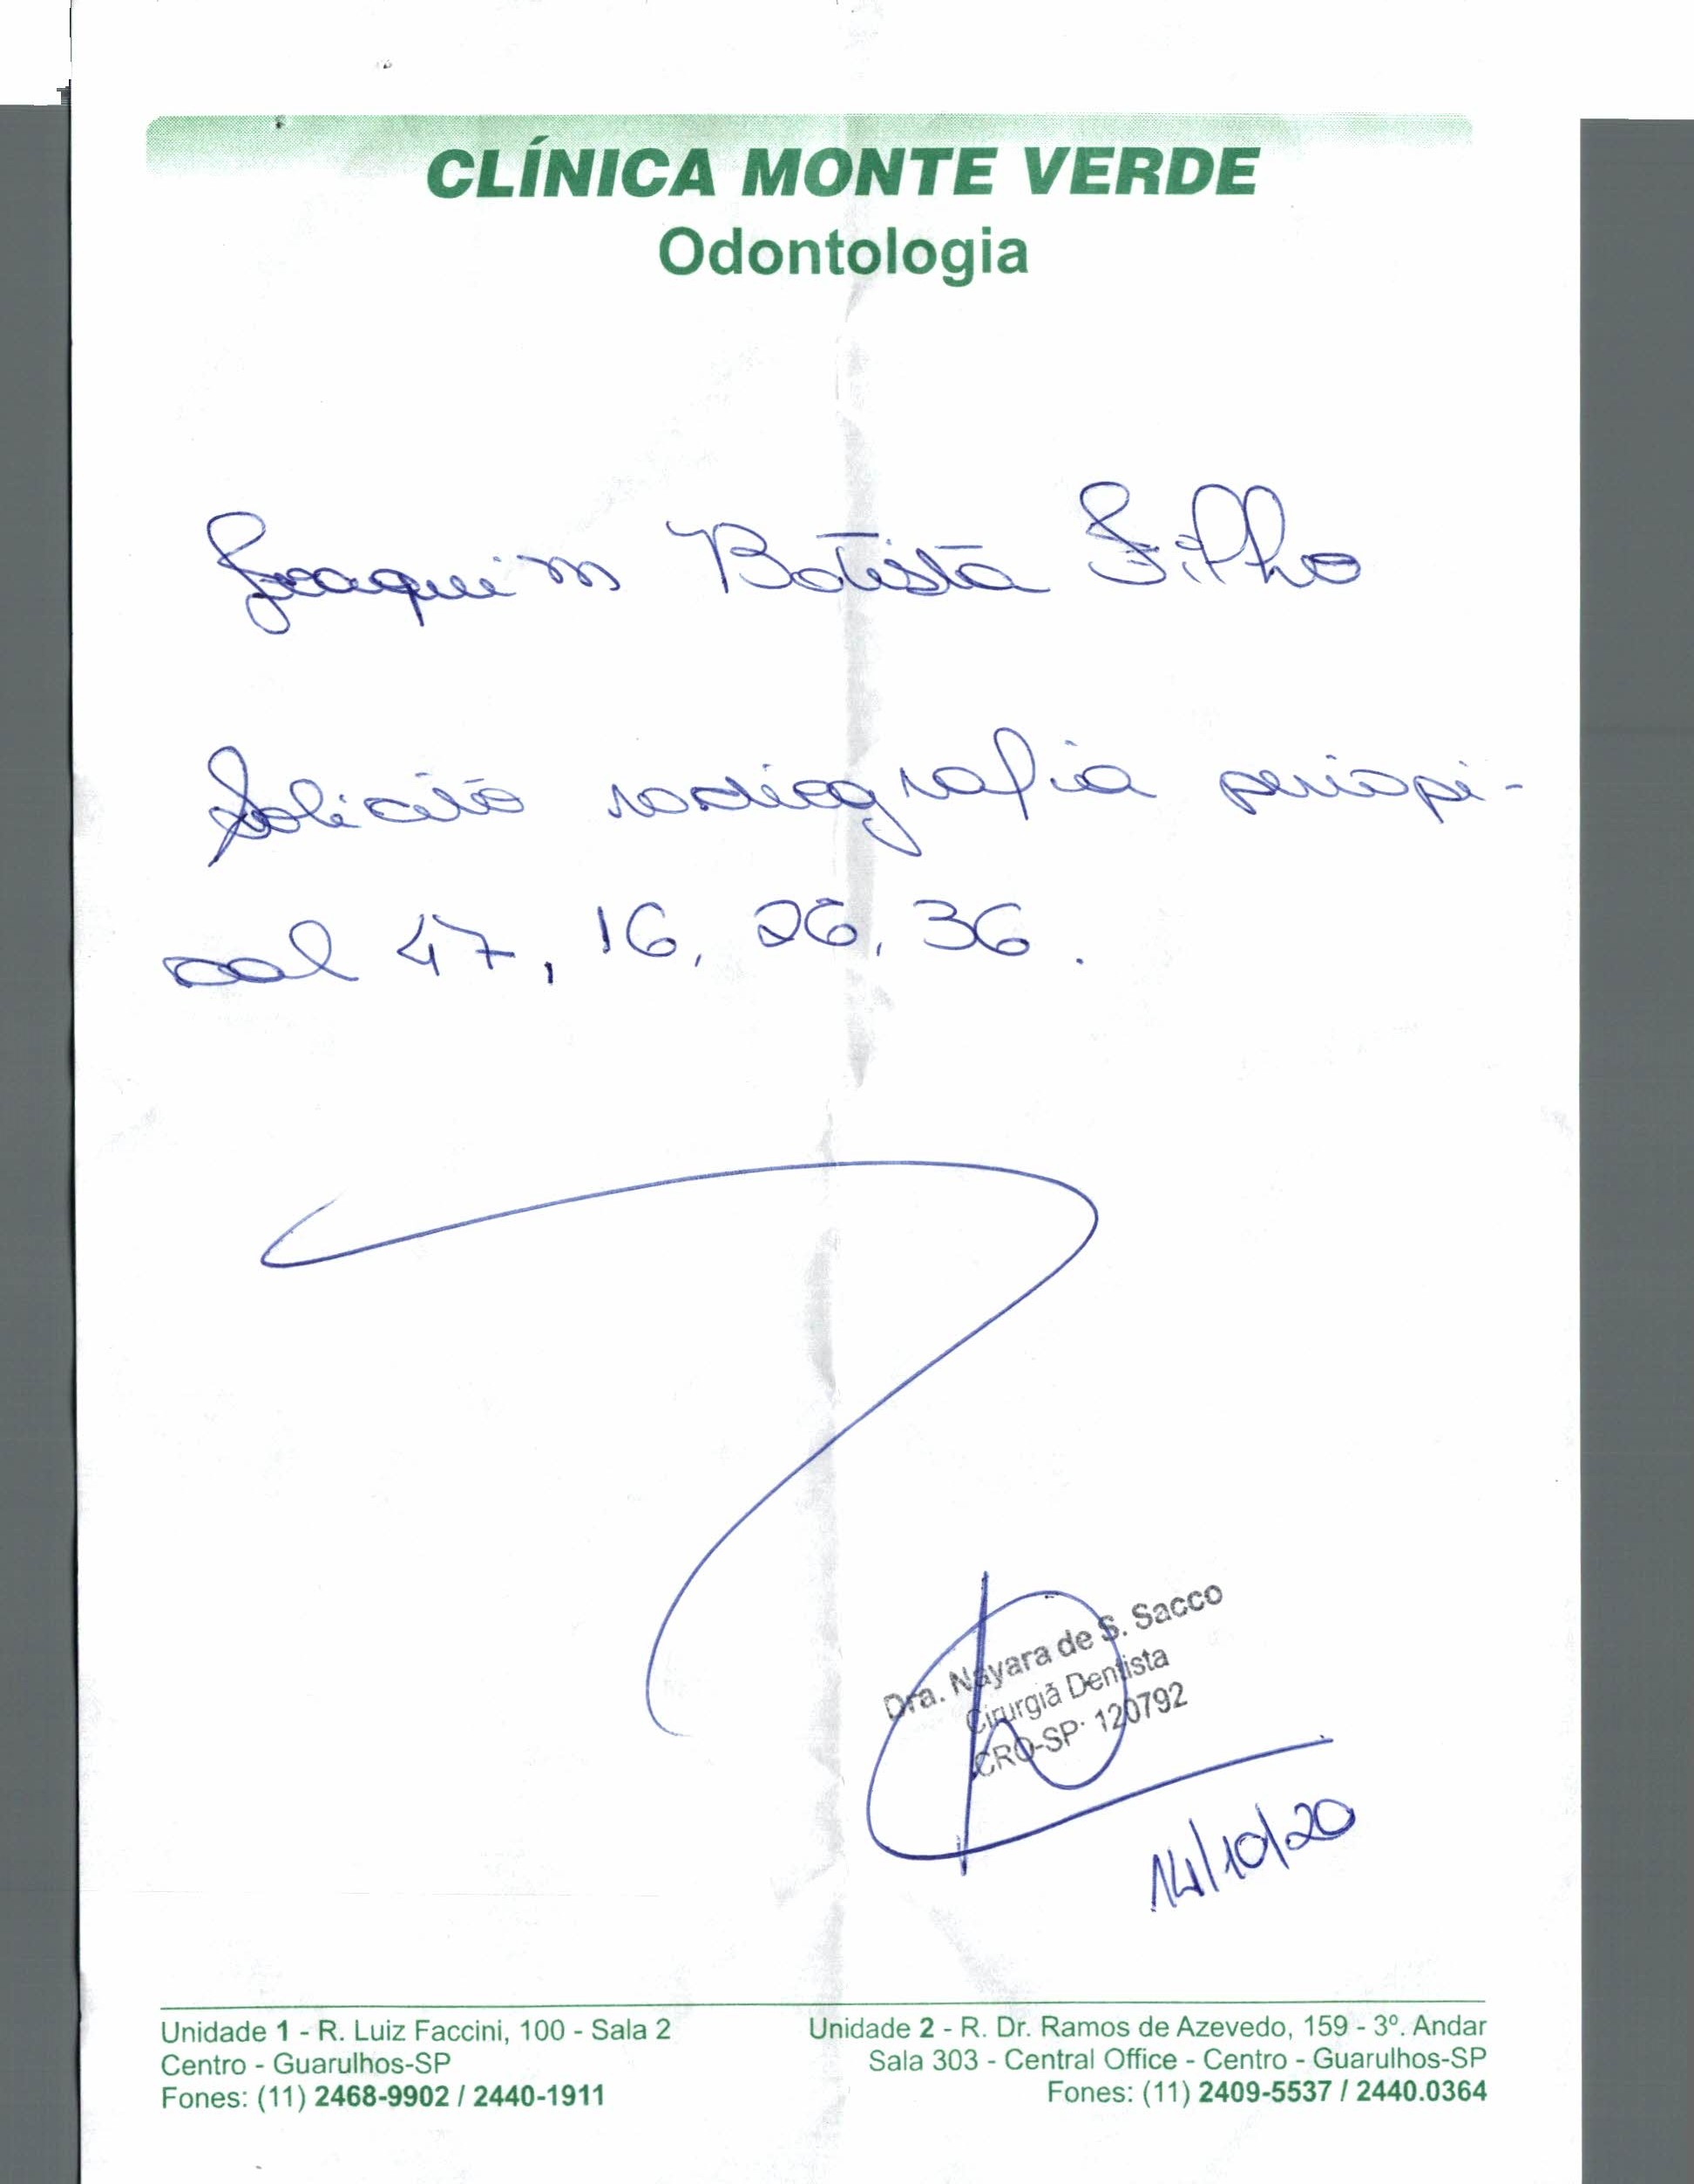 CLÍNICA MONTE VERDE
Odontologia
Joaquim Batista Filho
Solicito radiografia periapi-
cal 47, 16, 26, 36.
Dra. Nayara de S. Sacco
Cirurgiã Dentista
CRO-SP: 120792
14/10/20
Unidade 1 - R. Luiz Faccini, 100 - Sala 2
Centro - Guarulhos-SP
Fones: (11) 2468-9902 / 2440-1911
Unidade 2 - R. Dr. Ramos de Azevedo, 159 - 3º. Andar
Sala 303 - Central Office - Centro - Guarulhos-SP
Fones: (11) 2409-5537 / 2440.0364